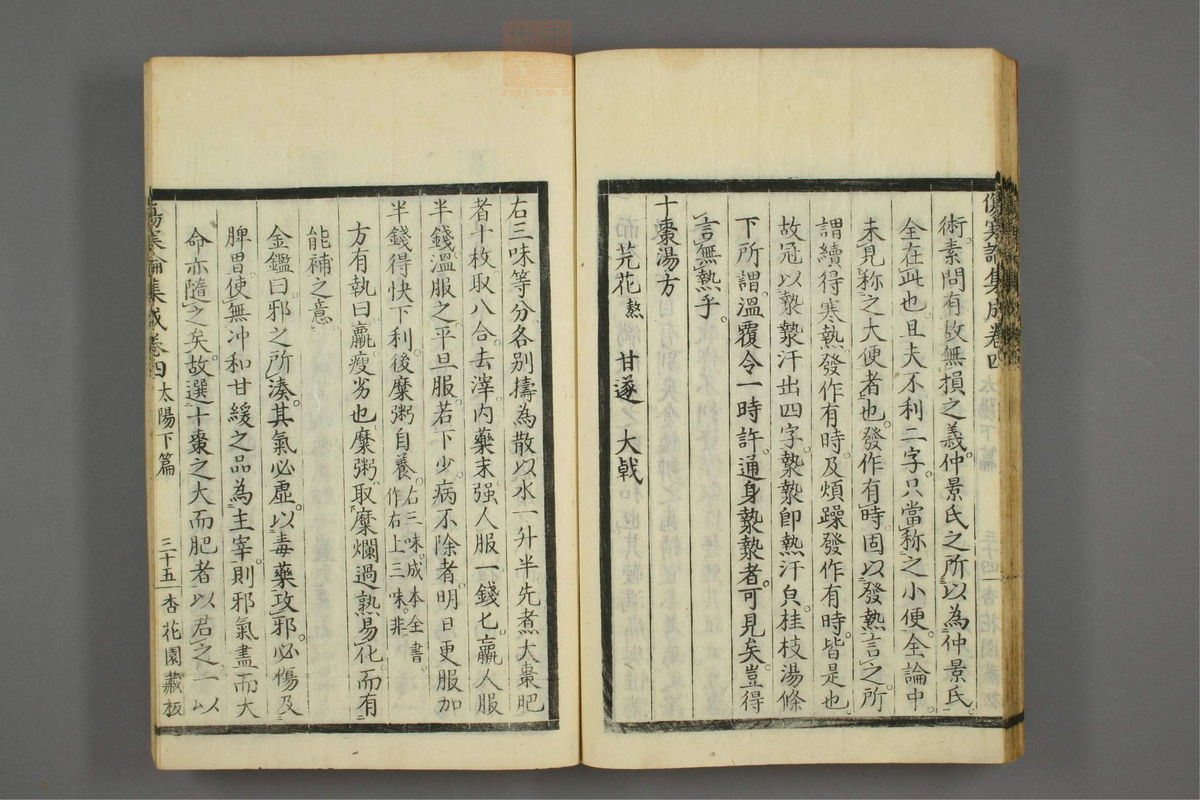 傷寒論集成卷四
術素問有故無損之義仲景氏之所以為仲景氏
全在此也且夫不利二字只當称之小便全論中
未見称之大便者也發作有時固以發熱言之所
謂續得寒熱發作有時及煩躁發作有時皆是也
故冠以漐漐汗出四字漐漐即熱汗皃桂枝湯條
下所謂溫覆令一時許通身漐漐者可見矣豈得
言無熱乎
十棗湯方
芫花熬 甘遂 大戟
右三味等分各別擣為散以水一升半先煮大棗肥
者十枚取八合去滓内藥末强人服一錢匕羸人服
半錢溫服之平旦服若下少病不除者明日更服加
半錢得快下利後糜粥自養右三味成本全書作右上三味非
方有執曰羸瘦劣也糜粥取糜爛過熟易化而有
能補之意
金鑑曰邪之所湊其氣必虛以毒藥攻邪必傷及
脾胃使無冲和甘緩之品為主宰則邪氣盡而大
命亦隨之矣故選十棗之大而肥者以君之一以
傷寒論集成卷四 太陽下篇 三十五 杏花園藏板